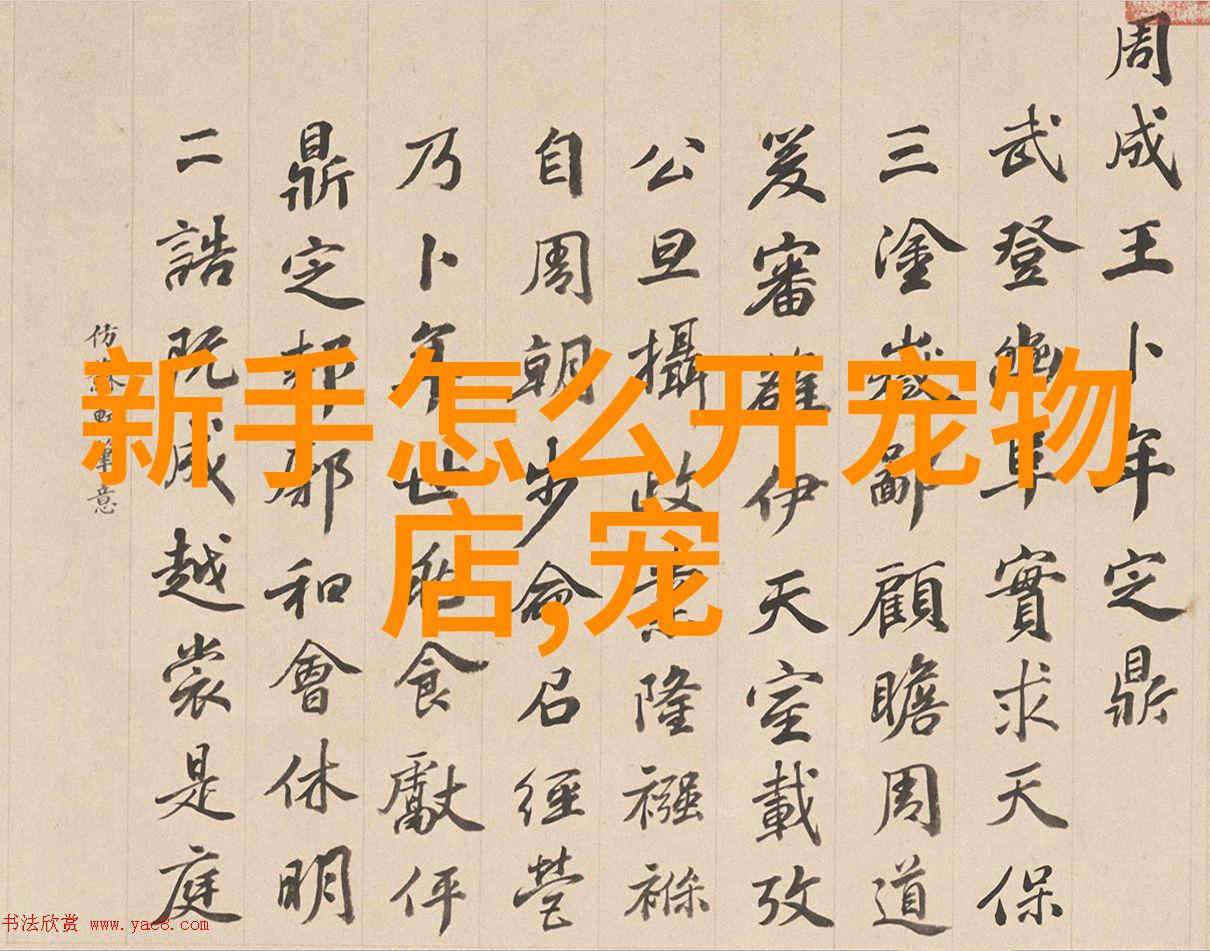 周成王卜年定鼎
武登豳阜實求天保
三塗嶽鄙顧瞻周道
爰審雒伊天室載攷
公旦攝政隆襁褓
自周朝步命召經營
乃卜年世食獻伻
鼎定郟鄏和會休明
二誥既成越裳是庭
仿筆意
新手怎么开宠物
店,宠
书法欣赏 www.yac8.com